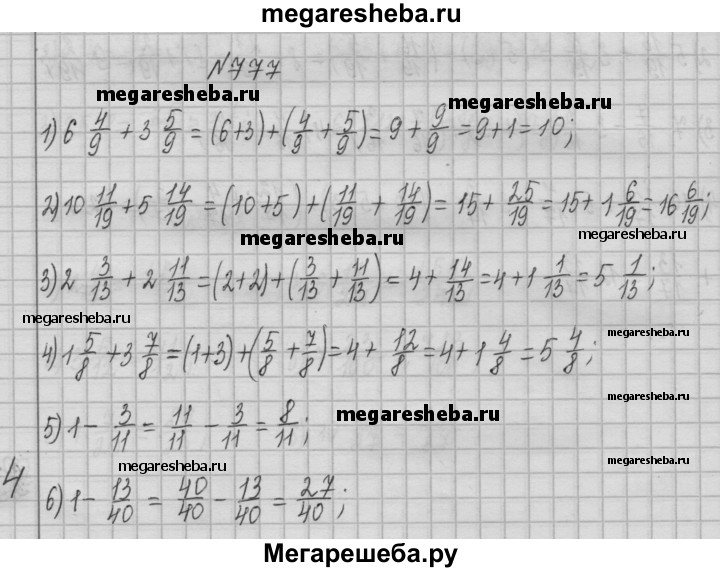 megaresheba.ru
№777
megaresheba.ru
megaresheba.ru
1) 6 4/9 + 3 5/9 = (6+3)+(4/9 + 5/9) = 9 + 9/9 = 9+1 = 10;
2) 10 11/19 + 5 14/19 = (10+5)+(11/19 + 14/19) = 15 + 25/19 = 15 + 1 6/19 = 16 6/19;
megaresheba.ru
megaresheba.ru
3) 2 3/13 + 2 11/13 = (2+2)+(3/13 + 11/13) = 4 + 14/13 = 4+1 1/13 = 5 1/13;
megaresheba.ru
megaresheba.ru
4) 1 5/8 + 3 7/8 = (1+3)+(5/8 + 7/8) = 4 + 12/8 = 4+1 4/8 = 5 4/8;
megaresheba.ru
5) 1 - 3/11 = 11/11 - 3/11 = 8/11;
megaresheba.ru
megaresheba.ru
4
6) 1 - 13/40 = 40/40 - 13/40 = 27/40;
megaresheba.ru
Мегарешеба.ру